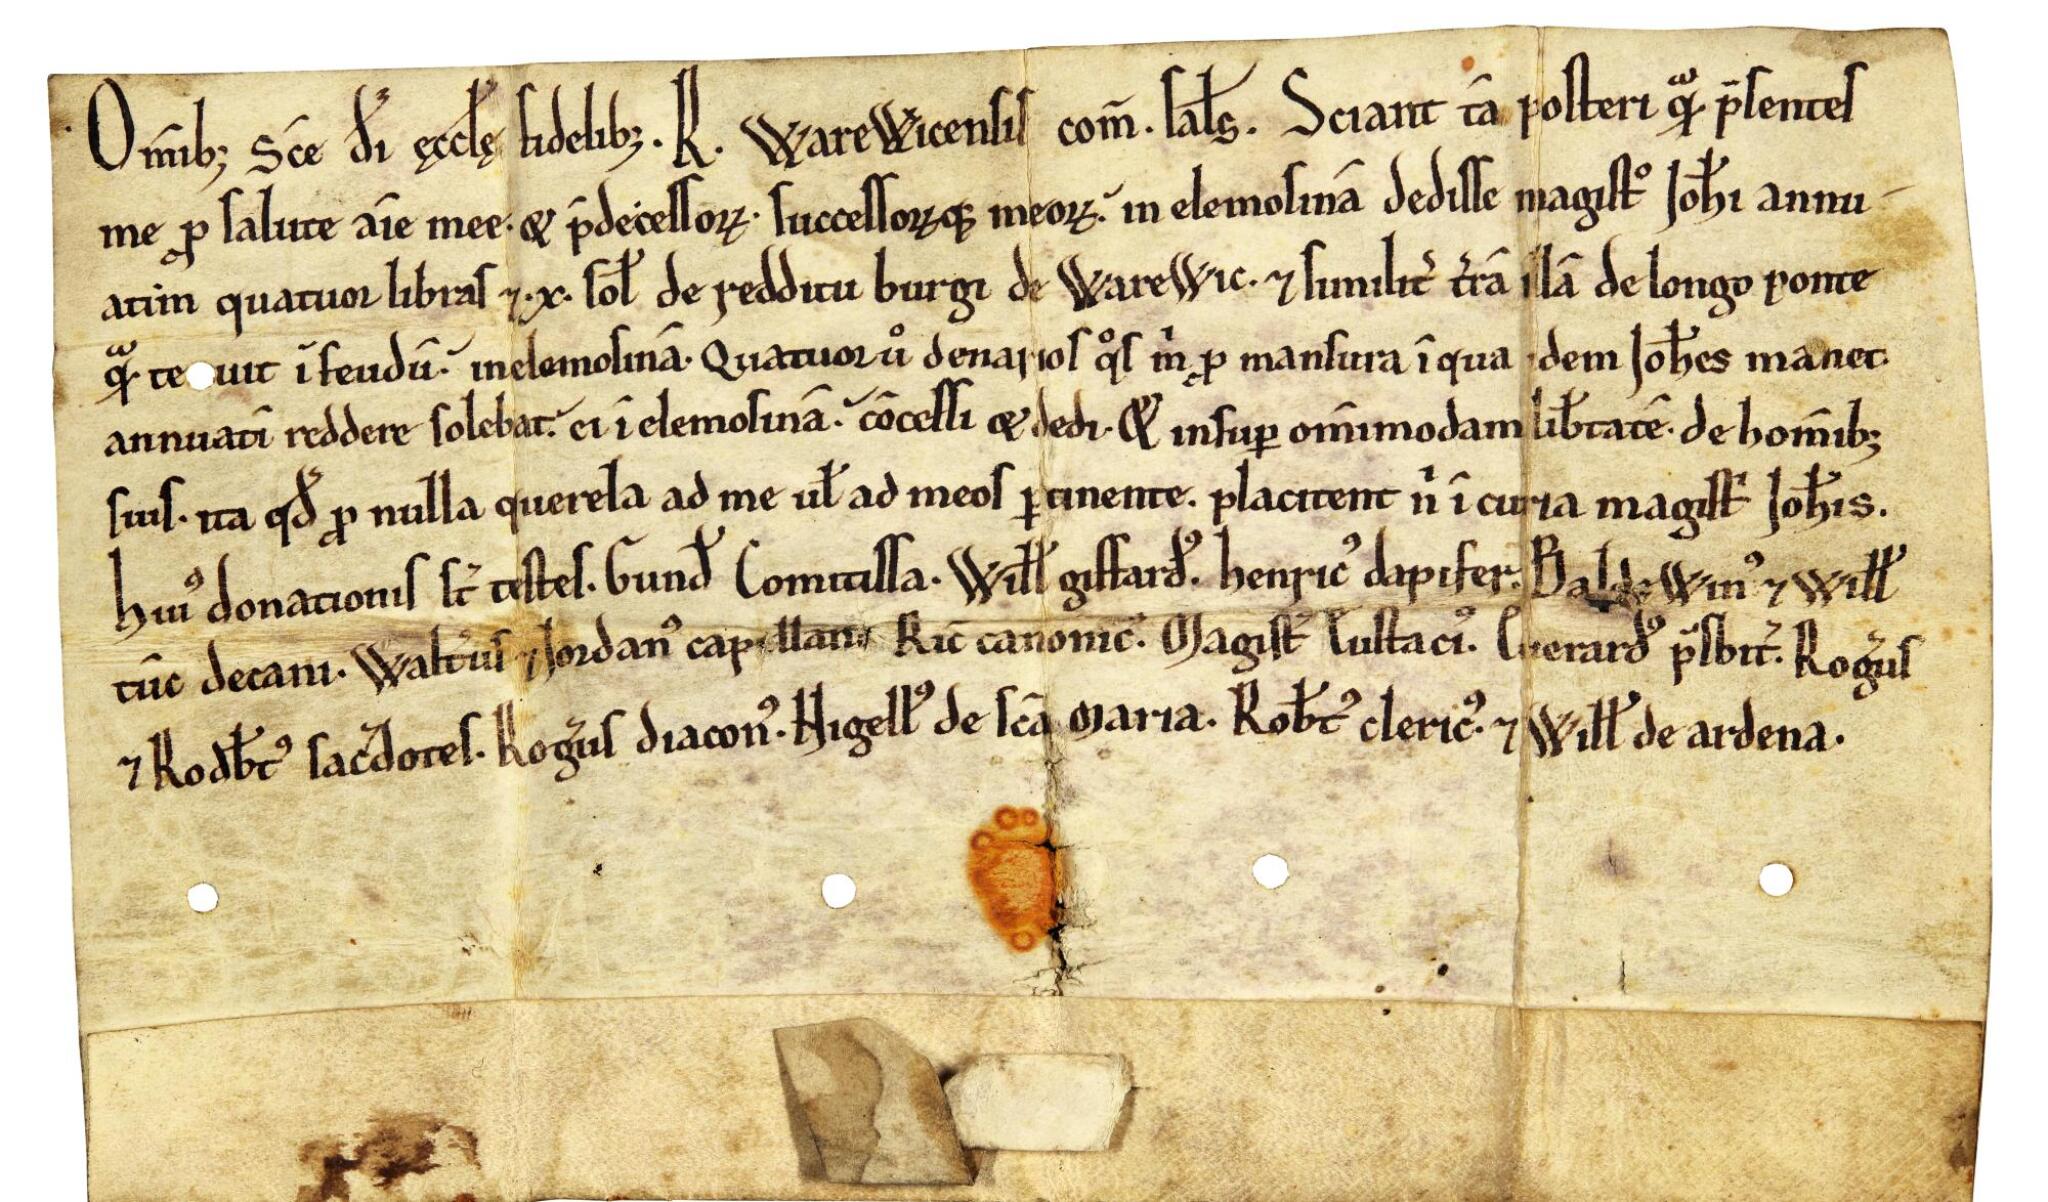 Om̄ib; Sc̄e d̄i ęccłę fidelib;. R. WareWicensis com̄. sałs. Sciant tā posteri qͣ p̄sentes
me ꝑ salute aīe mee. & p̄decessoꝝ. successoꝝqꝫ meoꝝ. in elemosinā dedisse magistº Joh̄i annu-
atim quatuor libras ⁊ .x. sol̄ de redditu burgi de WareWic. ⁊ similit̄ t̄rā illā de longo ponte
qͣ te uit ī feudū. in elemosinā. Quatuor ů denarios qºs m̄ ꝑ mansura ī qua idem Joh̄es manet.
annuatī reddere solebat. ei ī elemosinā. cōcessi & dedi. & insuꝑ om̄imodam lib̄tatē. de hom̄ib;
suis. ita qd̄ ꝓ nulla querela ad me ul̄ ad meos ꝑtinente. placitent n̄ ī curia magist̄ Joh̄is.
huiꝰ donationis st̄ testes. Gund̄ Comitissa. Will̄ giffardꝰ. henricꝰ dapifer. BaldeWinꝰ ⁊ Will̄
tūc decani. Walt̄us ⁊ Jordanꝰ capellani Ric̄ canonicꝰ. Magist̄ Eustaciꝰ. Everardꝰ p̄sbit̄. Roḡus
⁊ Rodb̄tꝰ sac̄dotes. Roḡus diaconꝰ. Nigellꝰ de sc̄a Maria. Rob̄tꝰ clericꝰ. ⁊ Will̄ de ardena.